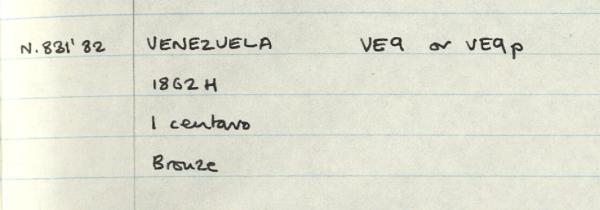 N.831'82 VENEZUELA VE9 or VE9p
1862 H
1 centavo
Bronze